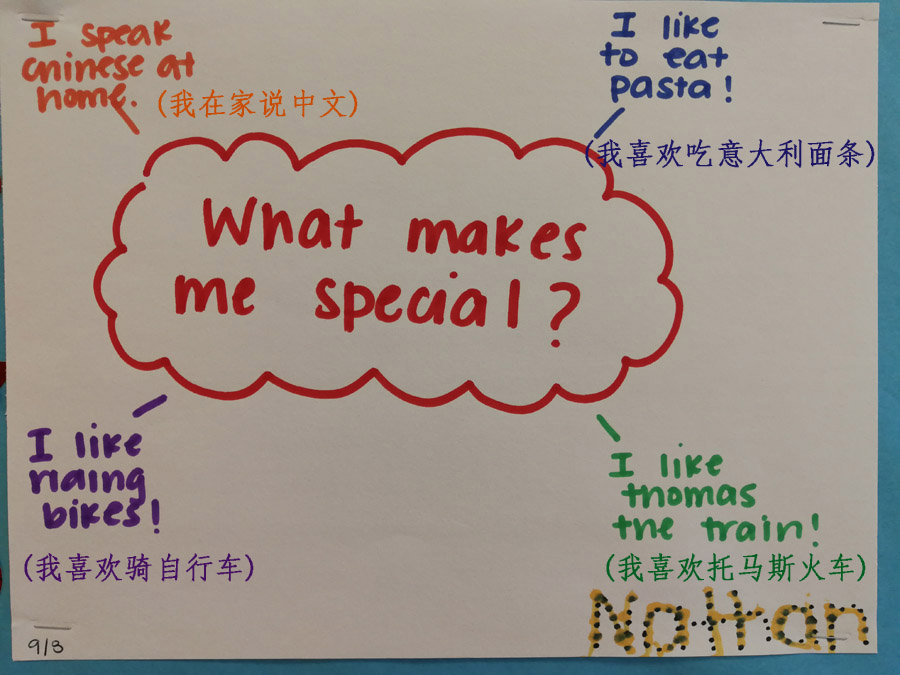 I speak
chinese at
home.
(我在家说中文)
I like
to eat
pasta!
(我喜欢吃意大利面条)
What makes
me special?
I like
riding
bikes!
(我喜欢骑自行车)
I like
thomas
the train!
(我喜欢托马斯火车)
Nathan
9/8